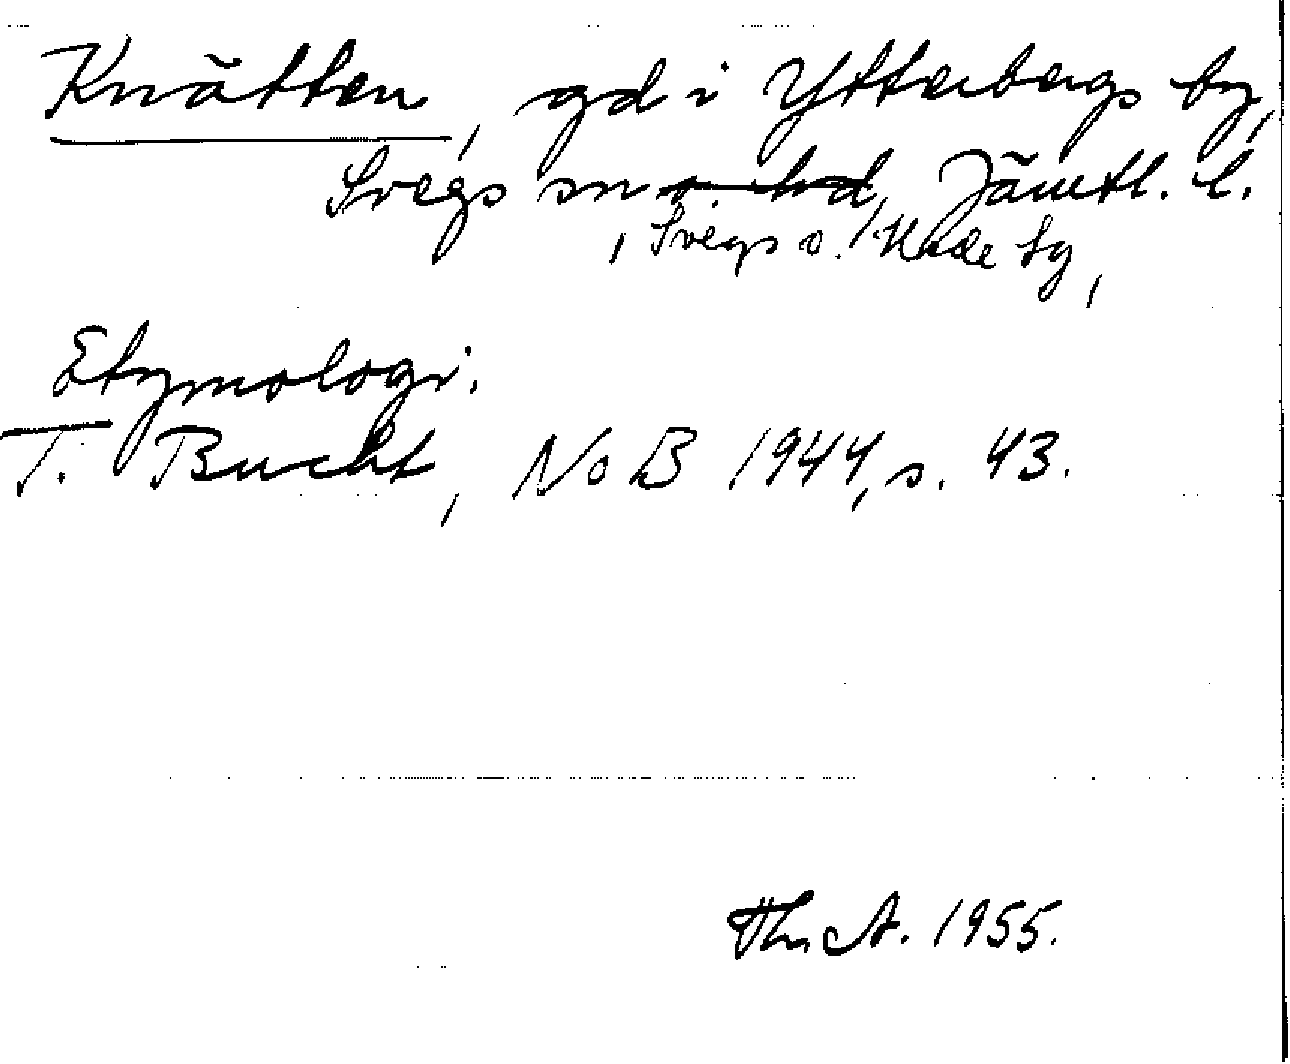 Knätten, gd i Ytterbergs by,
Svegs sn o. hd, Jämtl. l.
, Svegs o. Hede tg,
Etymologi.
T. Bucht, NoB 1944, s. 43.
Th. A. 1955.